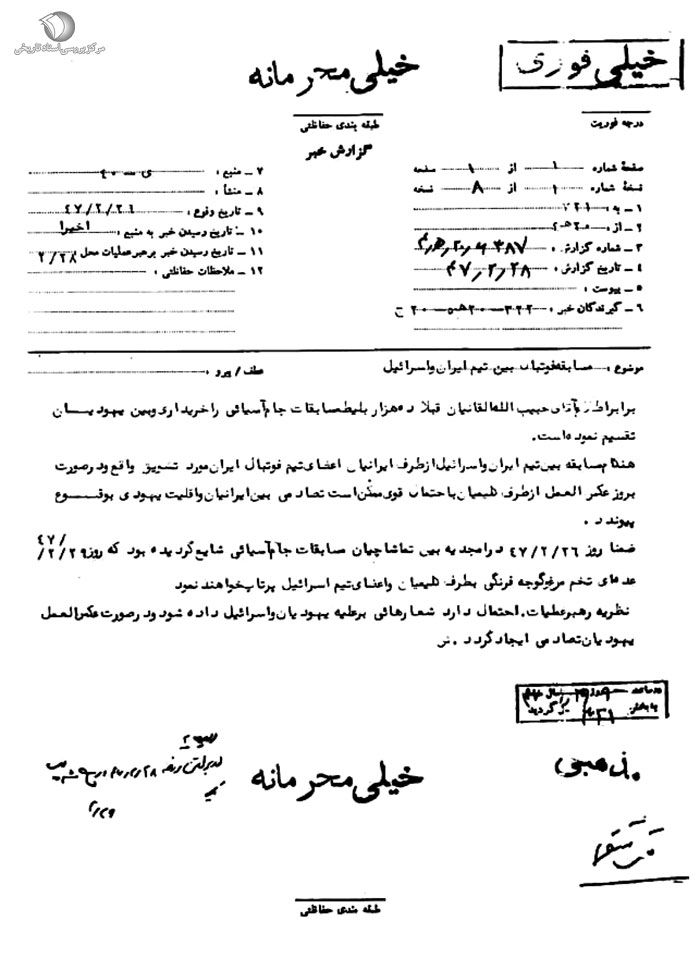 مرکز بررسی اسناد تاریخی
خیلی محرمانه
خیلی فوری
طبقه بندی حفاظتی
درجه فوریت
گزارش خبر
صفحهٔ شماره ۱ از ۱ صفحه
نسخهٔ شماره ۱ از ۸ نسخه
۱ - به : ۷۲۱
۲ - از : ۲۰ ه ۲
۳ - شماره گزارش :
۴ - تاریخ گزارش : ۴۷،۲،۲۸
۵ - پیوست :
۶ - گیرندگان خبر : ۳۲۲ - ۲۰ ه ۵ - ۲۰ ج
۷ - منبع : ی - ۴۰
۸ - منشأ :
۹ - تاریخ وقوع : ۴۷/۲/۲۶
۱۰ - تاریخ رسیدن خبر به منبع : اخیرا
۱۱ - تاریخ رسیدن خبر برهبرعملیات محل ۲/۲۸
۱۲ - ملاحظات حفاظتی :
موضوع : مسابقه فوتبال بین تیم ایران واسرائیل
عطف / پیرو :
برابر اظهار آقای حبیب الله القانیان قبلا ده هزار بلیط مسابقات جام آسیائی را خریداری وبین یهودیــان
تقسیم نموده است.
هنگام مسابقه بین تیم ایران واسرائیل از طرف ایرانیان اعضای تیم فوتبال ایران مورد تشویق واقع ودر صورت
بروز عکس العمل از طرف کلیمیان با احتمال قوی ممکن است تصادمی بین ایرانیان واقلیت یهودی بوقـــوع
پیوندد .
ضمنا روز ۴۷/۲/۲۶ در امجدیه بین تماشاچیان مسابقات جام آسیائی شایع گردیده بود که روز ۴۷/۲/۲۹
عده ای تخم مرغ وگوجه فرنگی بطرف کلیمیان واعضای تیم اسرائیل پرتاب خواهند نمود
نظریه رهبر عملیات. احتمال دارد شعارهائی برعلیه یهودیان واسرائیل داده شود ودر صورت عکس العمل
یهودیان تصادمی ایجاد گردد .
خیلی محرمانه
طبقه بندی حفاظتی